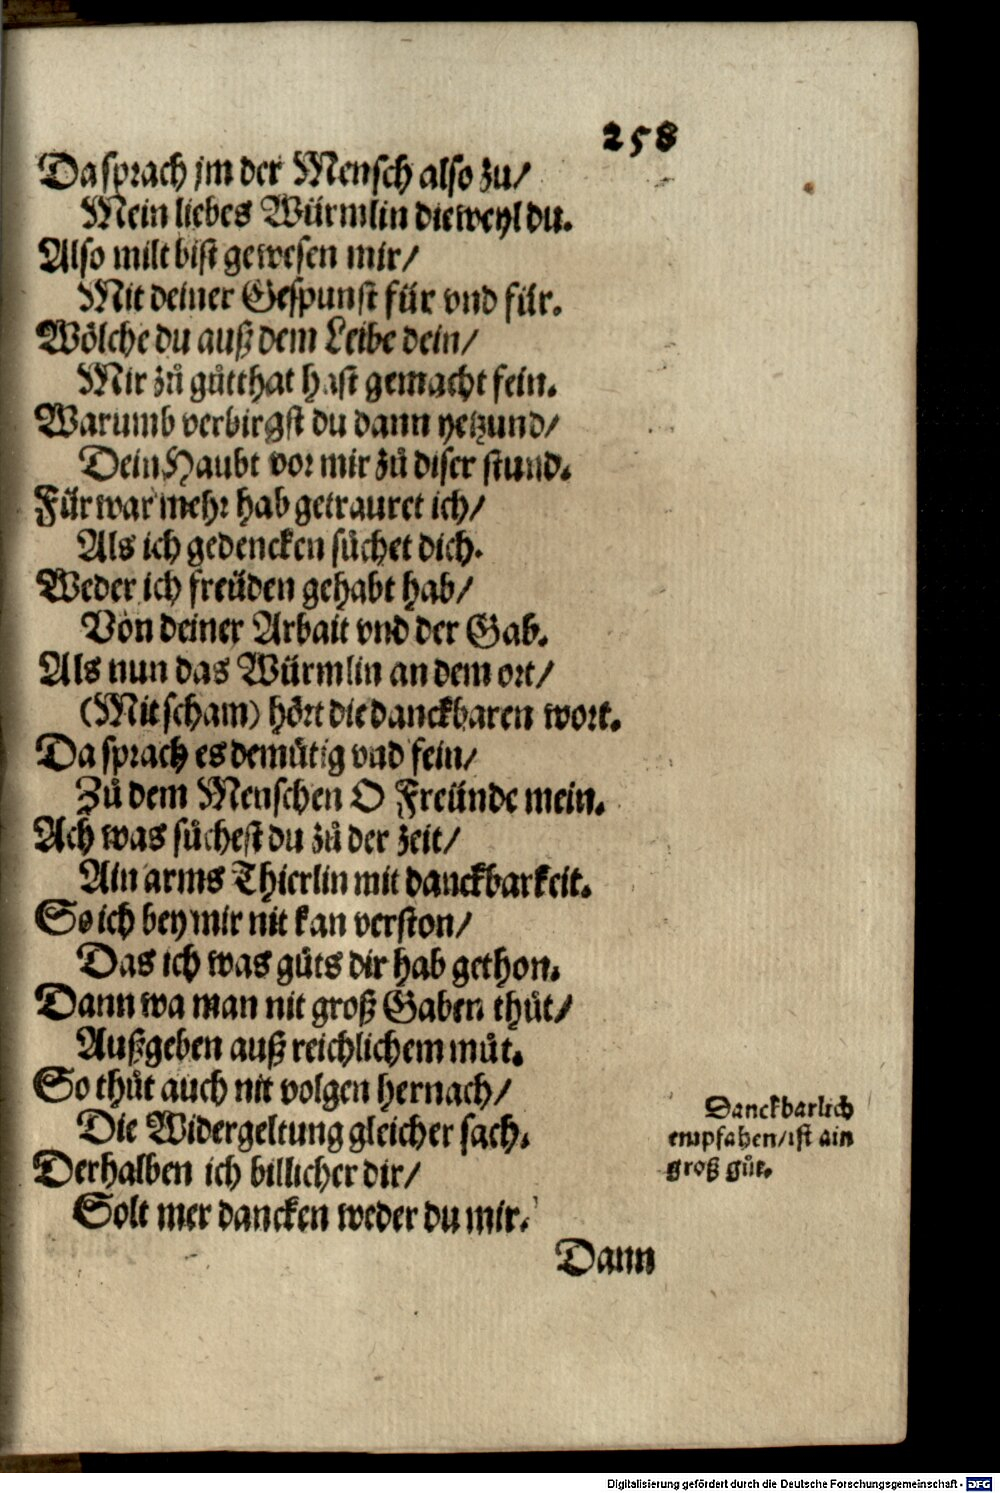 258
Da sprach jm der Mensch also zu/
Mein liebes Würmlin dieweyl du.
Also milt bist gewesen mir/
Mit deiner Gespunst für vnd für.
Wölche du auß dem Leibe dein/
Mir zů gůtthat hast gemacht fein.
Warumb verbirgst du dann yetzund/
Dein Haubt vor mir zů diser stund.
Für war mehr hab getrauret ich/
Als ich gedencken sůchet dich.
Weder ich freüden gehabt hab/
Von deiner Arbait vnd der Gab.
Als nun das Würmlin an dem ort/
(Mit scham) hört die danckbaren wort.
Da sprach es demůtig vnd fein/
Zů dem Menschen O Freünde mein.
Ach was sůchest du zů der zeit/
Ain arms Thierlin mit danckbarkeit.
So ich bey mir nit kan verston/
Das ich was gůts dir hab gethon.
Dann wa man nit groß Gaben thůt/
Außgeben auß reichlichem můt.
So thůt auch nit volgen hernach/
Die Widergeltung gleicher sach.
Derhalben ich billicher dir/
Solt mer dancken weder du mir.
Danckbarlich
empfahen/ist ain
groß gůt.
Dann
Digitalisierung gefördert durch die Deutsche Forschungsgemeinschaft - DFG